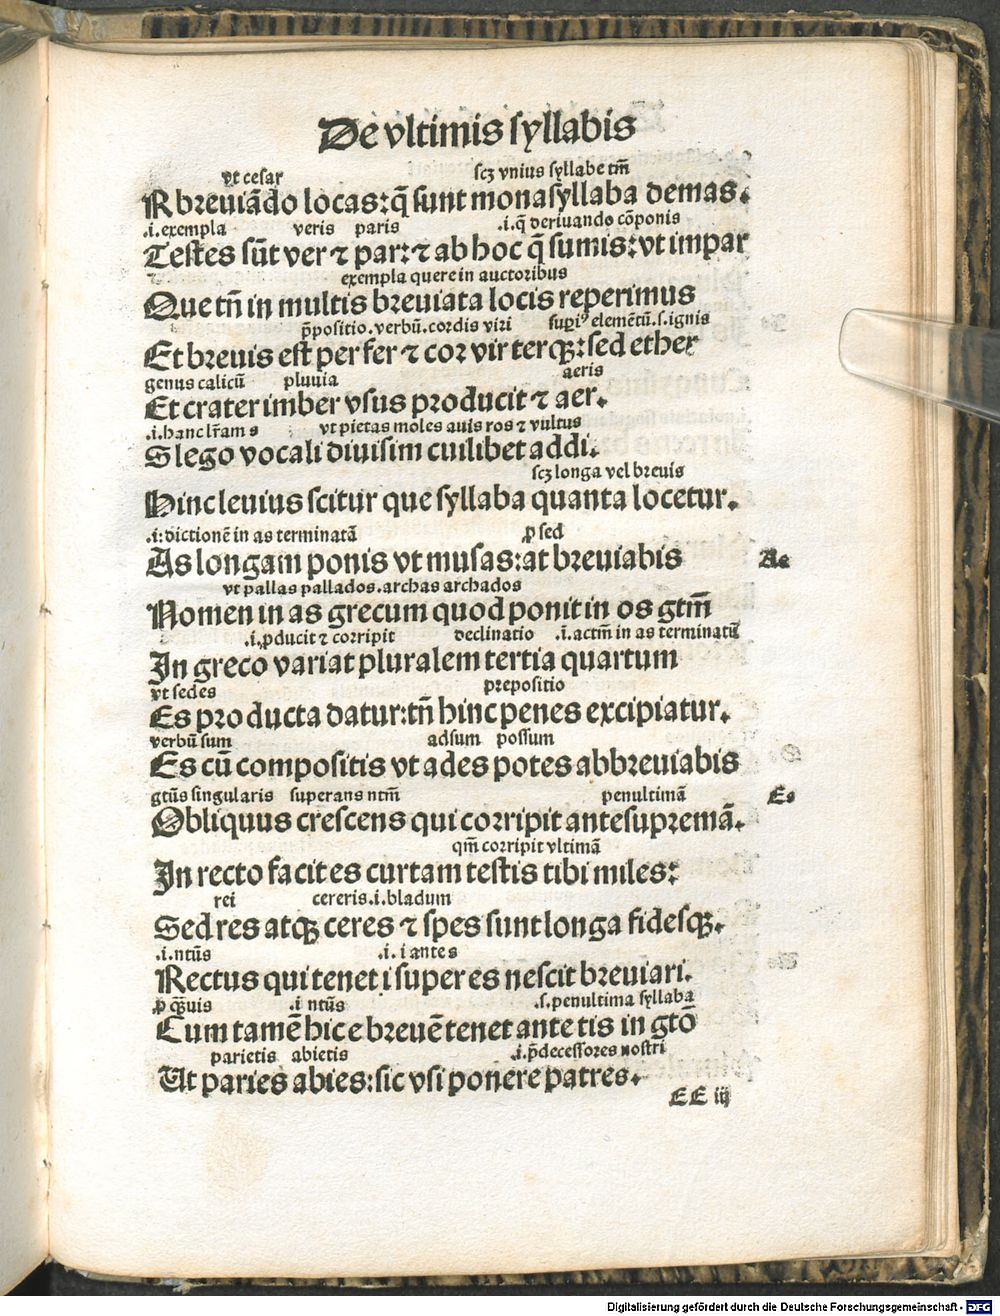 De vltimis syllabis
vt cesar scꝫ vnius syllabe tm̄
R breuiādo locas: q̄ sunt monasyllaba demas.
.i. exempla veris paris .i. q̄ deriuando cōponis
Testes sūt ver ⁊ par: ⁊ ab hoc q̄ sumis: vt impar
exempla quere in auctoribus
Que tn̄ in multis breuiata locis reperimus
p̄positio. verbū. cordis viri supiꝰ elemētū. s. ignis
Et breuis est per fer ⁊ cor vir terqꝫ: sed ether
genus calicū pluuia aeris
Et crater imber vsus producit ⁊ aer.
.i. hanc lr̄am s vt pietas moles auis ros ⁊ vultus
S lego vocali diuisim cuilibet addi.
scꝫ longa vel breuis
Hinc leuius scitur que syllaba quanta locetur.
.i: dictionē in as terminatā ꝓ sed
As longam ponis vt musas: at breuiabis
As
vt pallas pallados. archas archados
Nomen in as grecum quod ponit in os gtm̄
.i. ꝓducit ⁊ corripit declinatio .i. actm̄ in as terminatū
In greco variat pluralem tertia quartum
vt sedes prepositio
Es producta datur: tn̄ hinc penes excipiatur.
verbū sum adsum possum
Es cū compositis vt ades potes abbreuiabis
gtūs singularis superans ntm̄ penultimā
Es
Obliquus crescens qui corripit antesupremā.
qm̄ corripit vltimā
In recto facit es curtam testis tibi miles:
rei cereris .i. bladum
Sed res atqꝫ ceres ⁊ spes sunt longa fidesqꝫ.
.i. ntūs .i. i ante s
Rectus qui tenet i super es nescit breuiari.
ꝓ qꝫuis .i ntūs .s. penultima syllaba
Cum tamē hic e breuē tenet ante tis in gtō
parietis abietis .i. p̄decessores nostri
Ut paries abies: sic vsi ponere patres.
EE iij
Digitalisierung gefördert durch die Deutsche Forschungsgemeinschaft - DFG